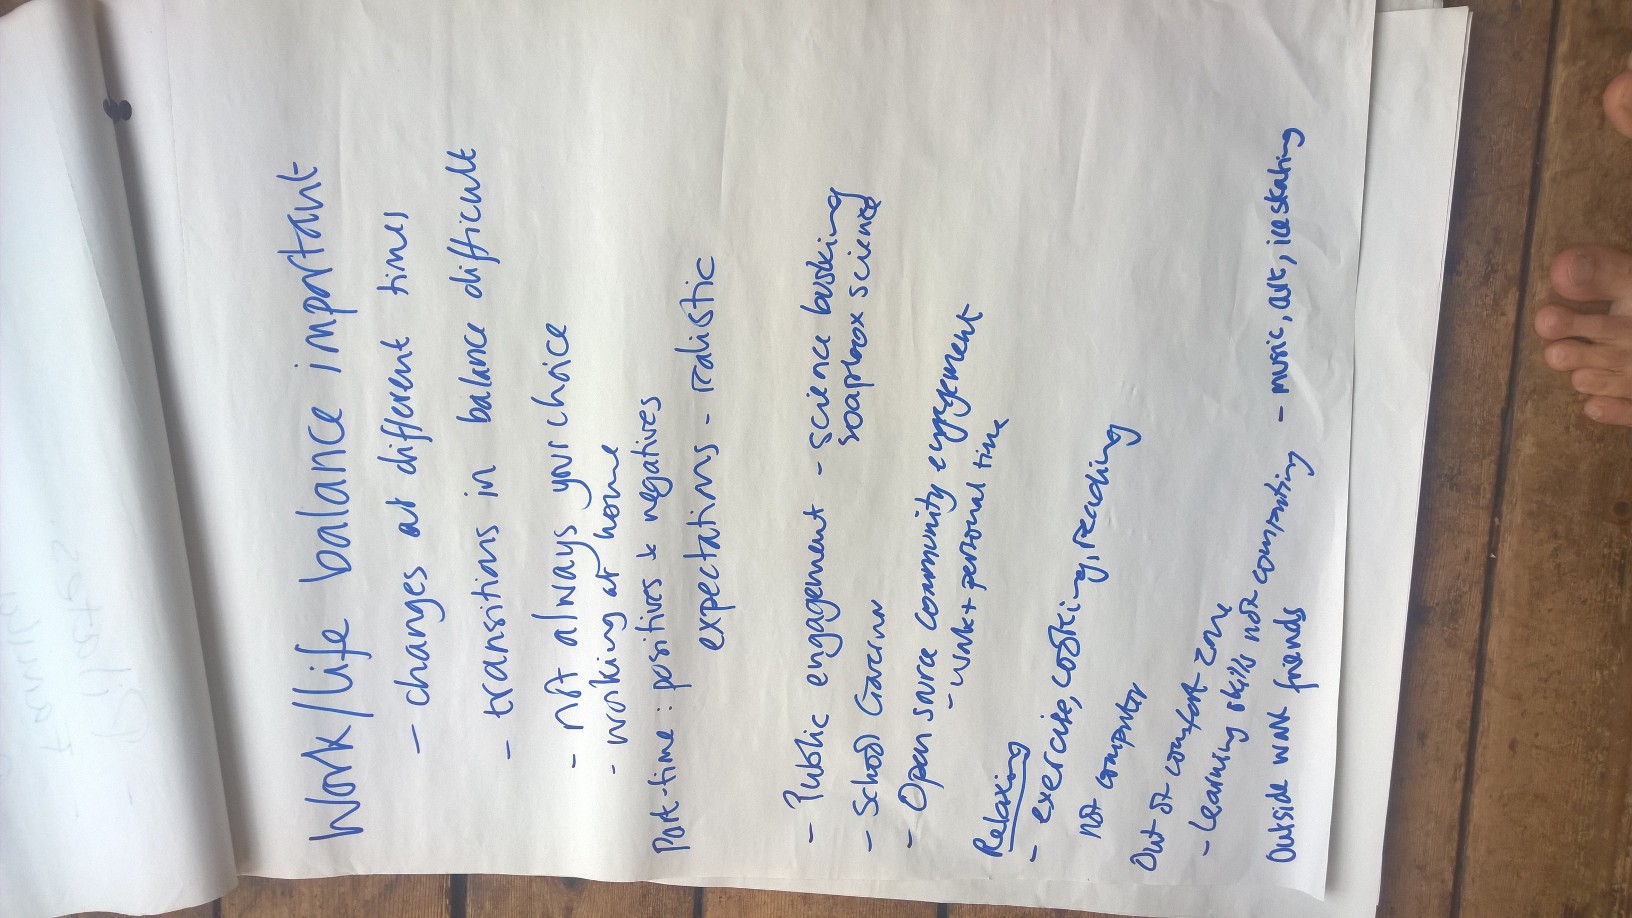 Work/life balance important
- changes at different times
- transitions in balance difficult
- not always your choice
- working at home
Part-time : positives & negatives
expectations - realistic
- Public engagement - science busking
soapbox science
- School Governor
- Open source community engagement
- work + personal time
Relaxing
- exercise, cooking, reading
not computer
Out of comfort zone
- Learning skills not computing - music, art, ice skating
Outside work friends